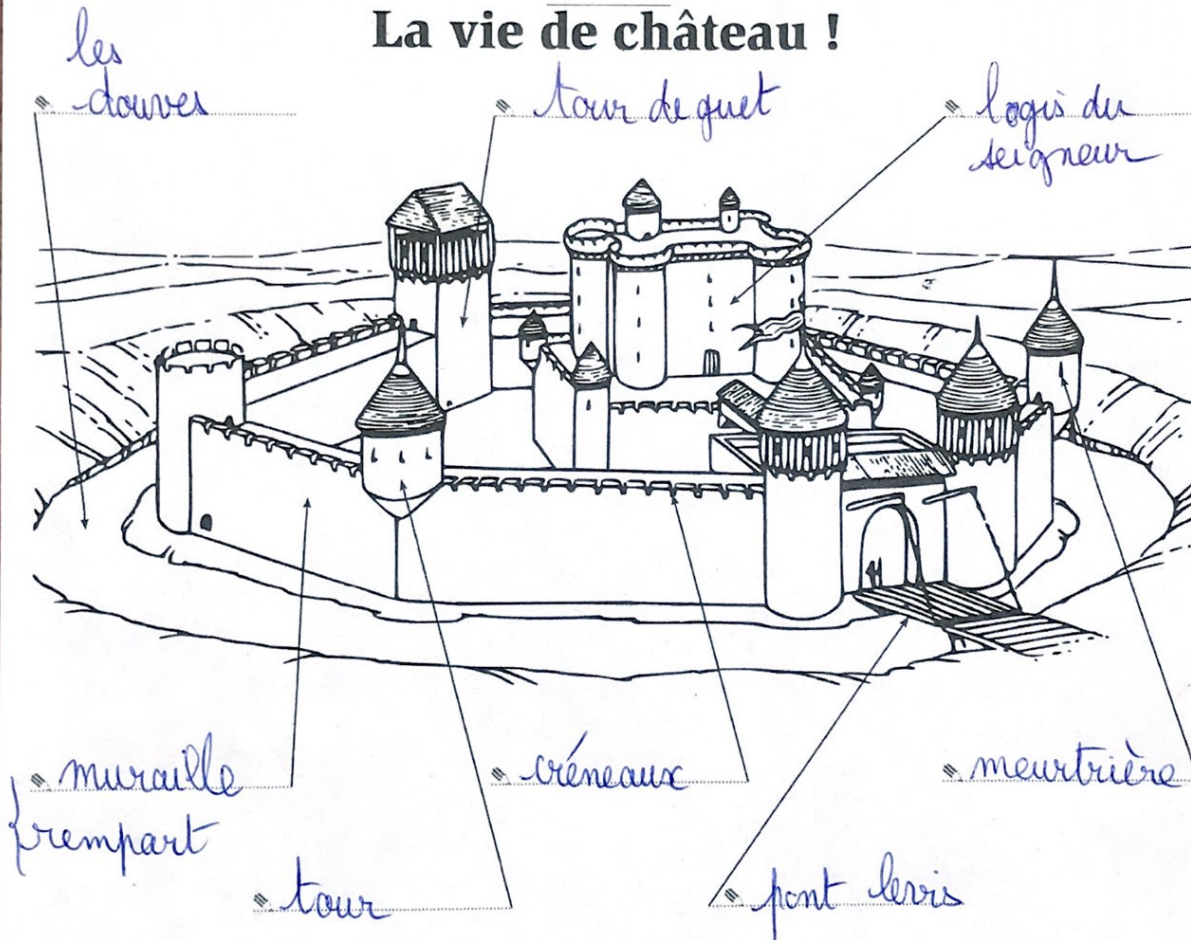 La vie de château !
les
douves
tour de guet
logis du
seigneur
muraille
rempart
créneaux
meurtrière
tour
pont levis